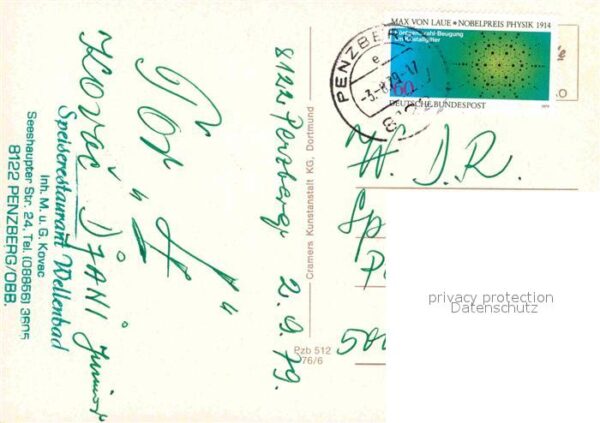 MAX VON LAUE • NOBELPREIS PHYSIK 1914
Röntgenstrahl-Beugung
am Kristallgitter
60
DEUTSCHE BUNDESPOST
1979
PENZBERG
e
-3.-8.79.-17
8122
8122 Penzberg 2.9.79.
Tor 4"
Kovač DJANI junior
Speiserestaurant Wellenbad
Inh. M. u. G. Kovac
Seeshaupter Str. 24, Tel. (08856) 3605
8122 PENZBERG/OBB.
Cramers Kunstanstalt KG, Dortmund
Pzb 512
76/6
W. D. R.
500
privacy protection
Datenschutz